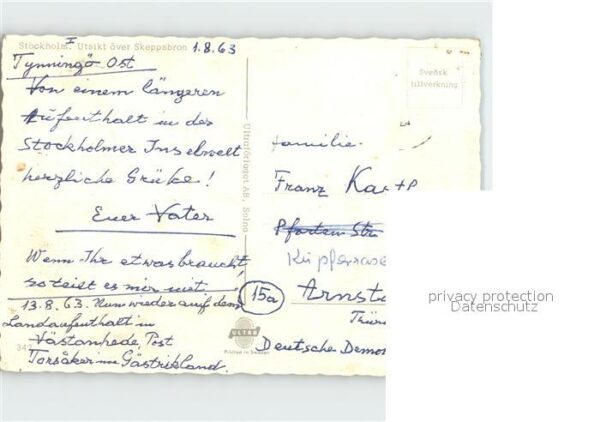 Stockholm. Utsikt över Skeppsbron
I
1.8.63
Tynningö Ost
Von einem längeren
Aufenthalt in der
Stockholmer Inselwelt
herzliche Grüße!
Euer Vater
Wenn Ihr etwas braucht,
so teilt es mir mit.
13.8.63. Nun wieder auf dem
Landaufenthalt in
Västanhede, Post
Torsåker in Gästrikland.
342
Ultraförlaget AB, Solna
ULTRA
Printed in Sweden
Svensk
tillverkning
Familie
Franz
Pforten Str
15a
Arnsta
Thür
Deutsche Demo
privacy protection
Datenschutz